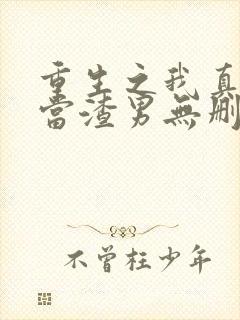 重生之我真
當渣男無刪
不曾枉少年